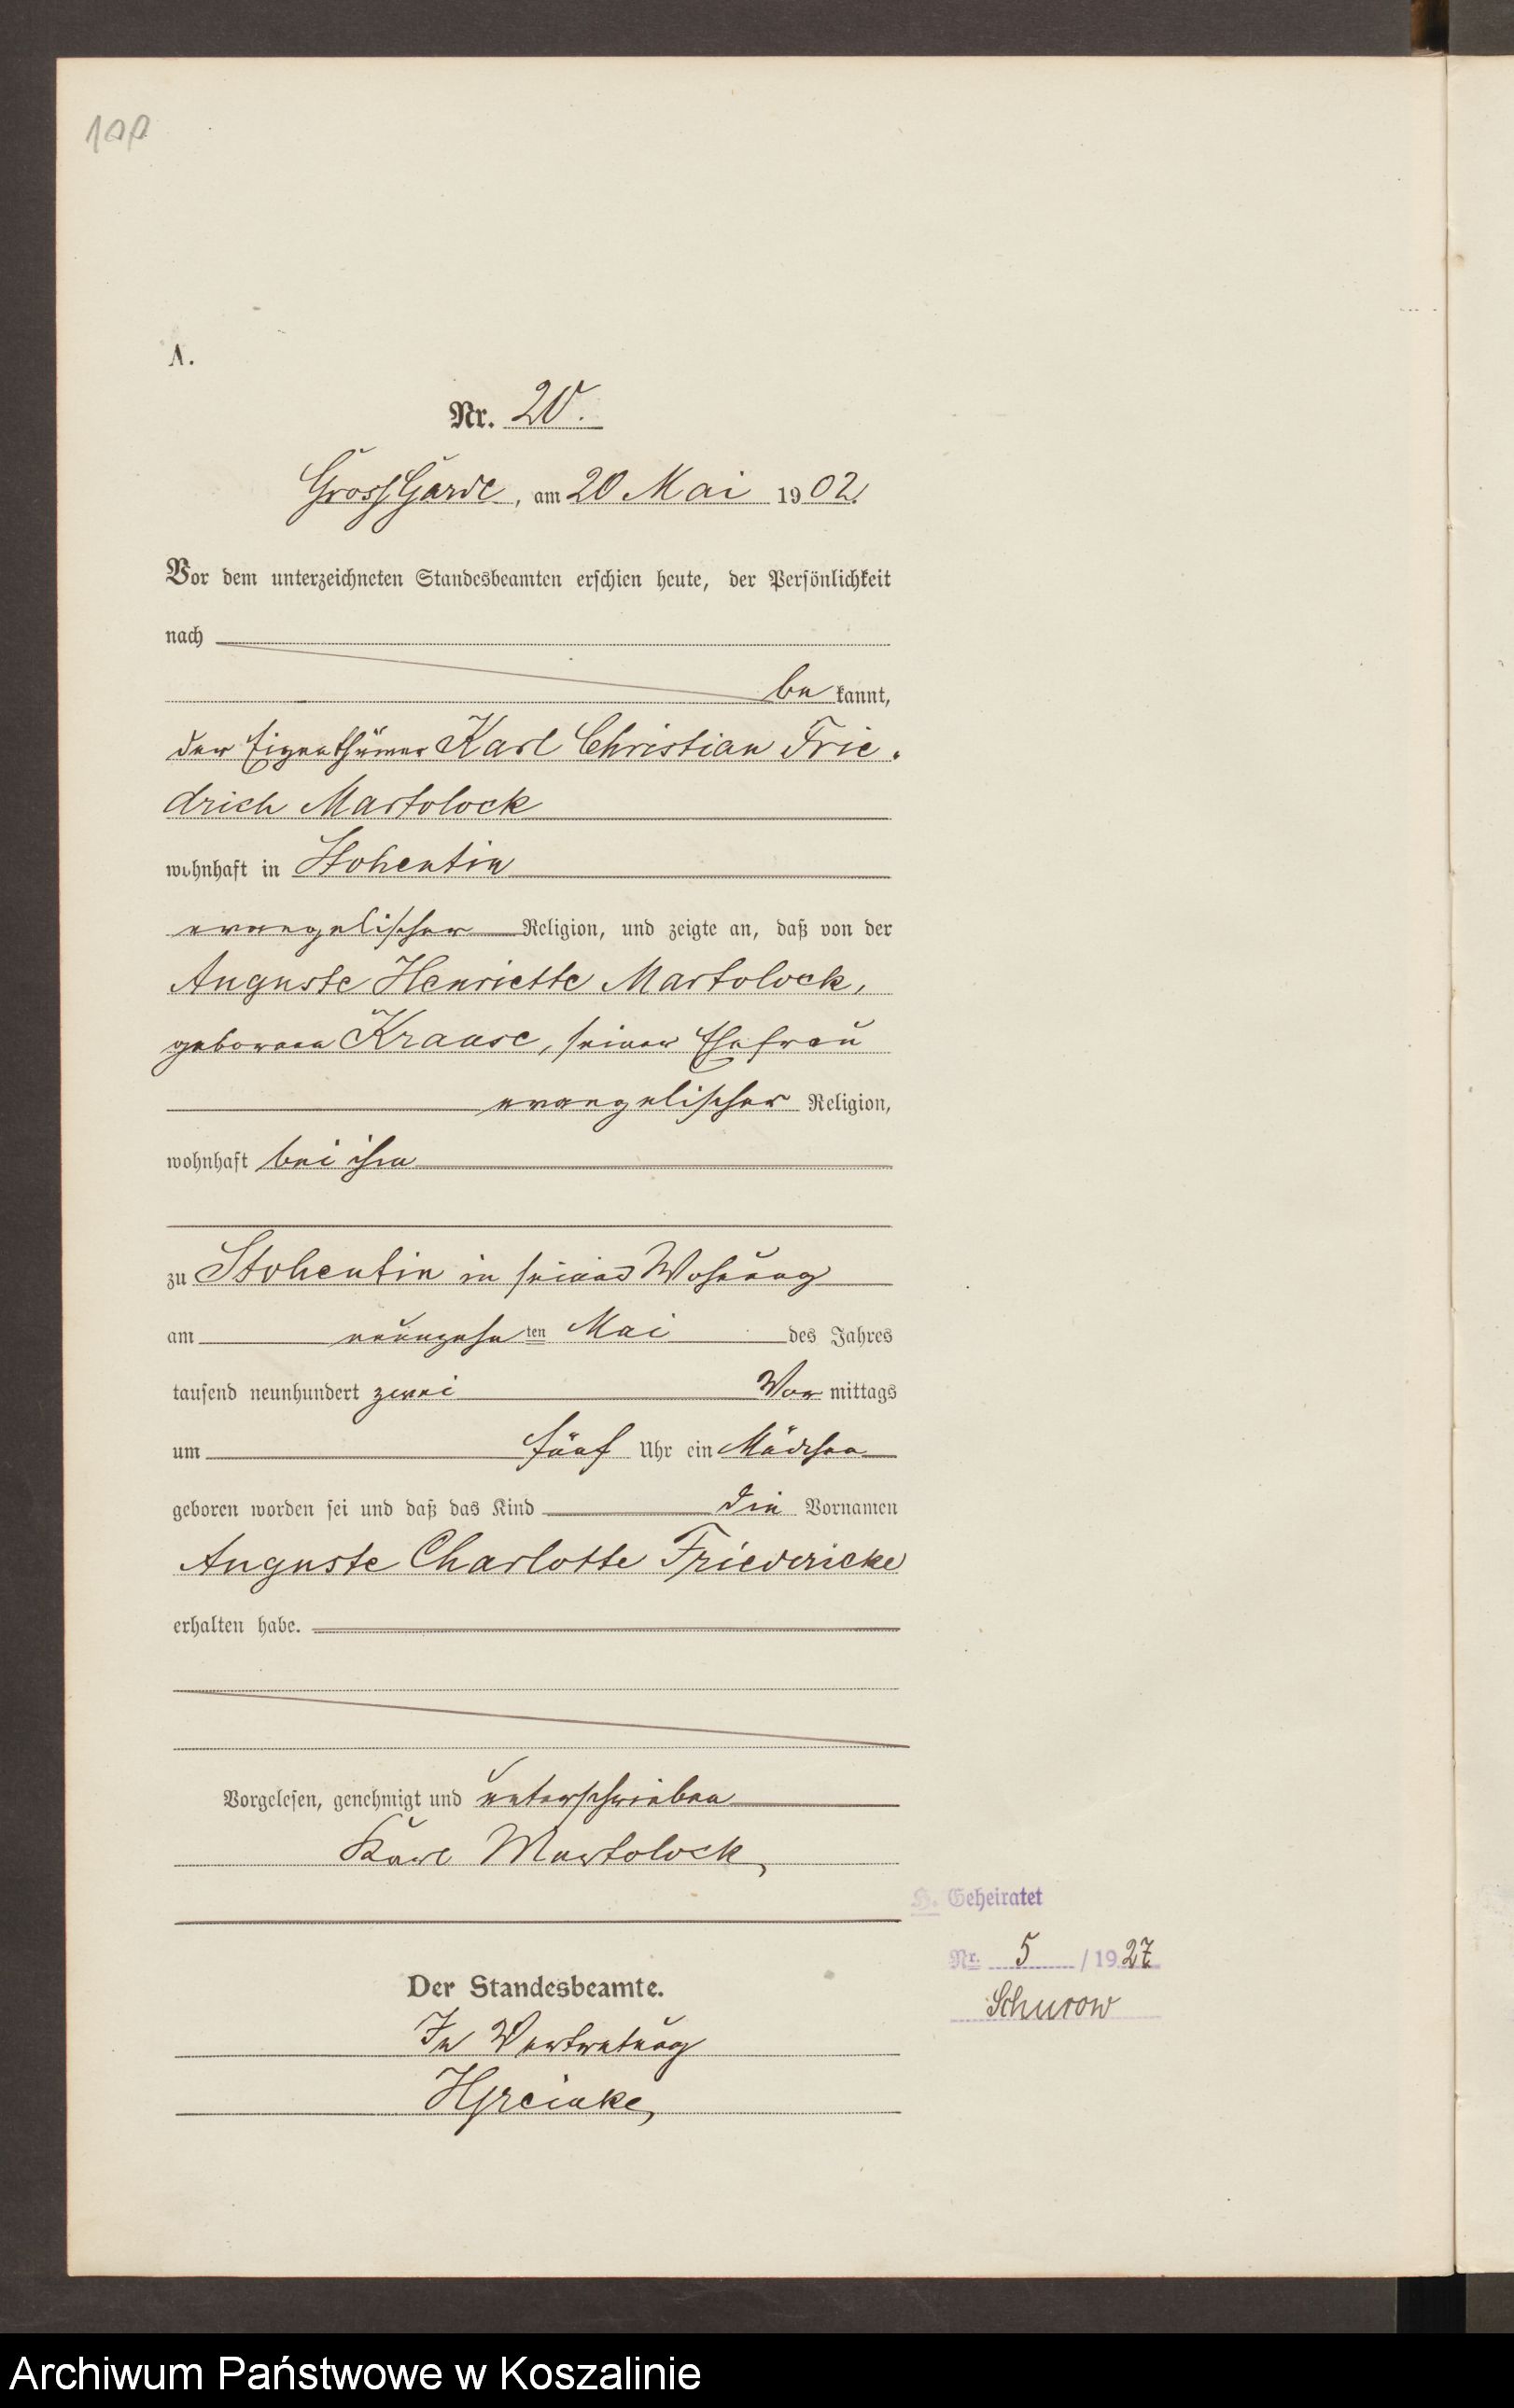 100
A.
Nr. 20.
Gross Garde, am 20 Mai 1902.
Vor dem unterzeichneten Standesbeamten erschien heute, der Persönlichkeit
nach
be kannt,
der Eigenthümer Karl Christian Frie-
drich Martolock
wohnhaft in Stohentin
evangelischer Religion, und zeigte an, daß von der
Auguste Henriette Martolock,
geborenen Krause, seiner Ehefrau
evangelischer Religion,
wohnhaft bei ihm
zu Stohentin in seiner Wohnung
am neunzehn ten Mai des Jahres
tausend neunhundert zwei Vor mittags
um fünf Uhr ein Mädchen
geboren worden sei und daß das Kind die Vornamen
Auguste Charlotte Friedericke
erhalten habe.
Vorgelesen, genehmigt und unterschrieben
Karl Martolock
H. Geheiratet
Nr. 5 / 1927
Schurow
Der Standesbeamte.
In Vertretung
Archiwum Państwowe w Koszalinie